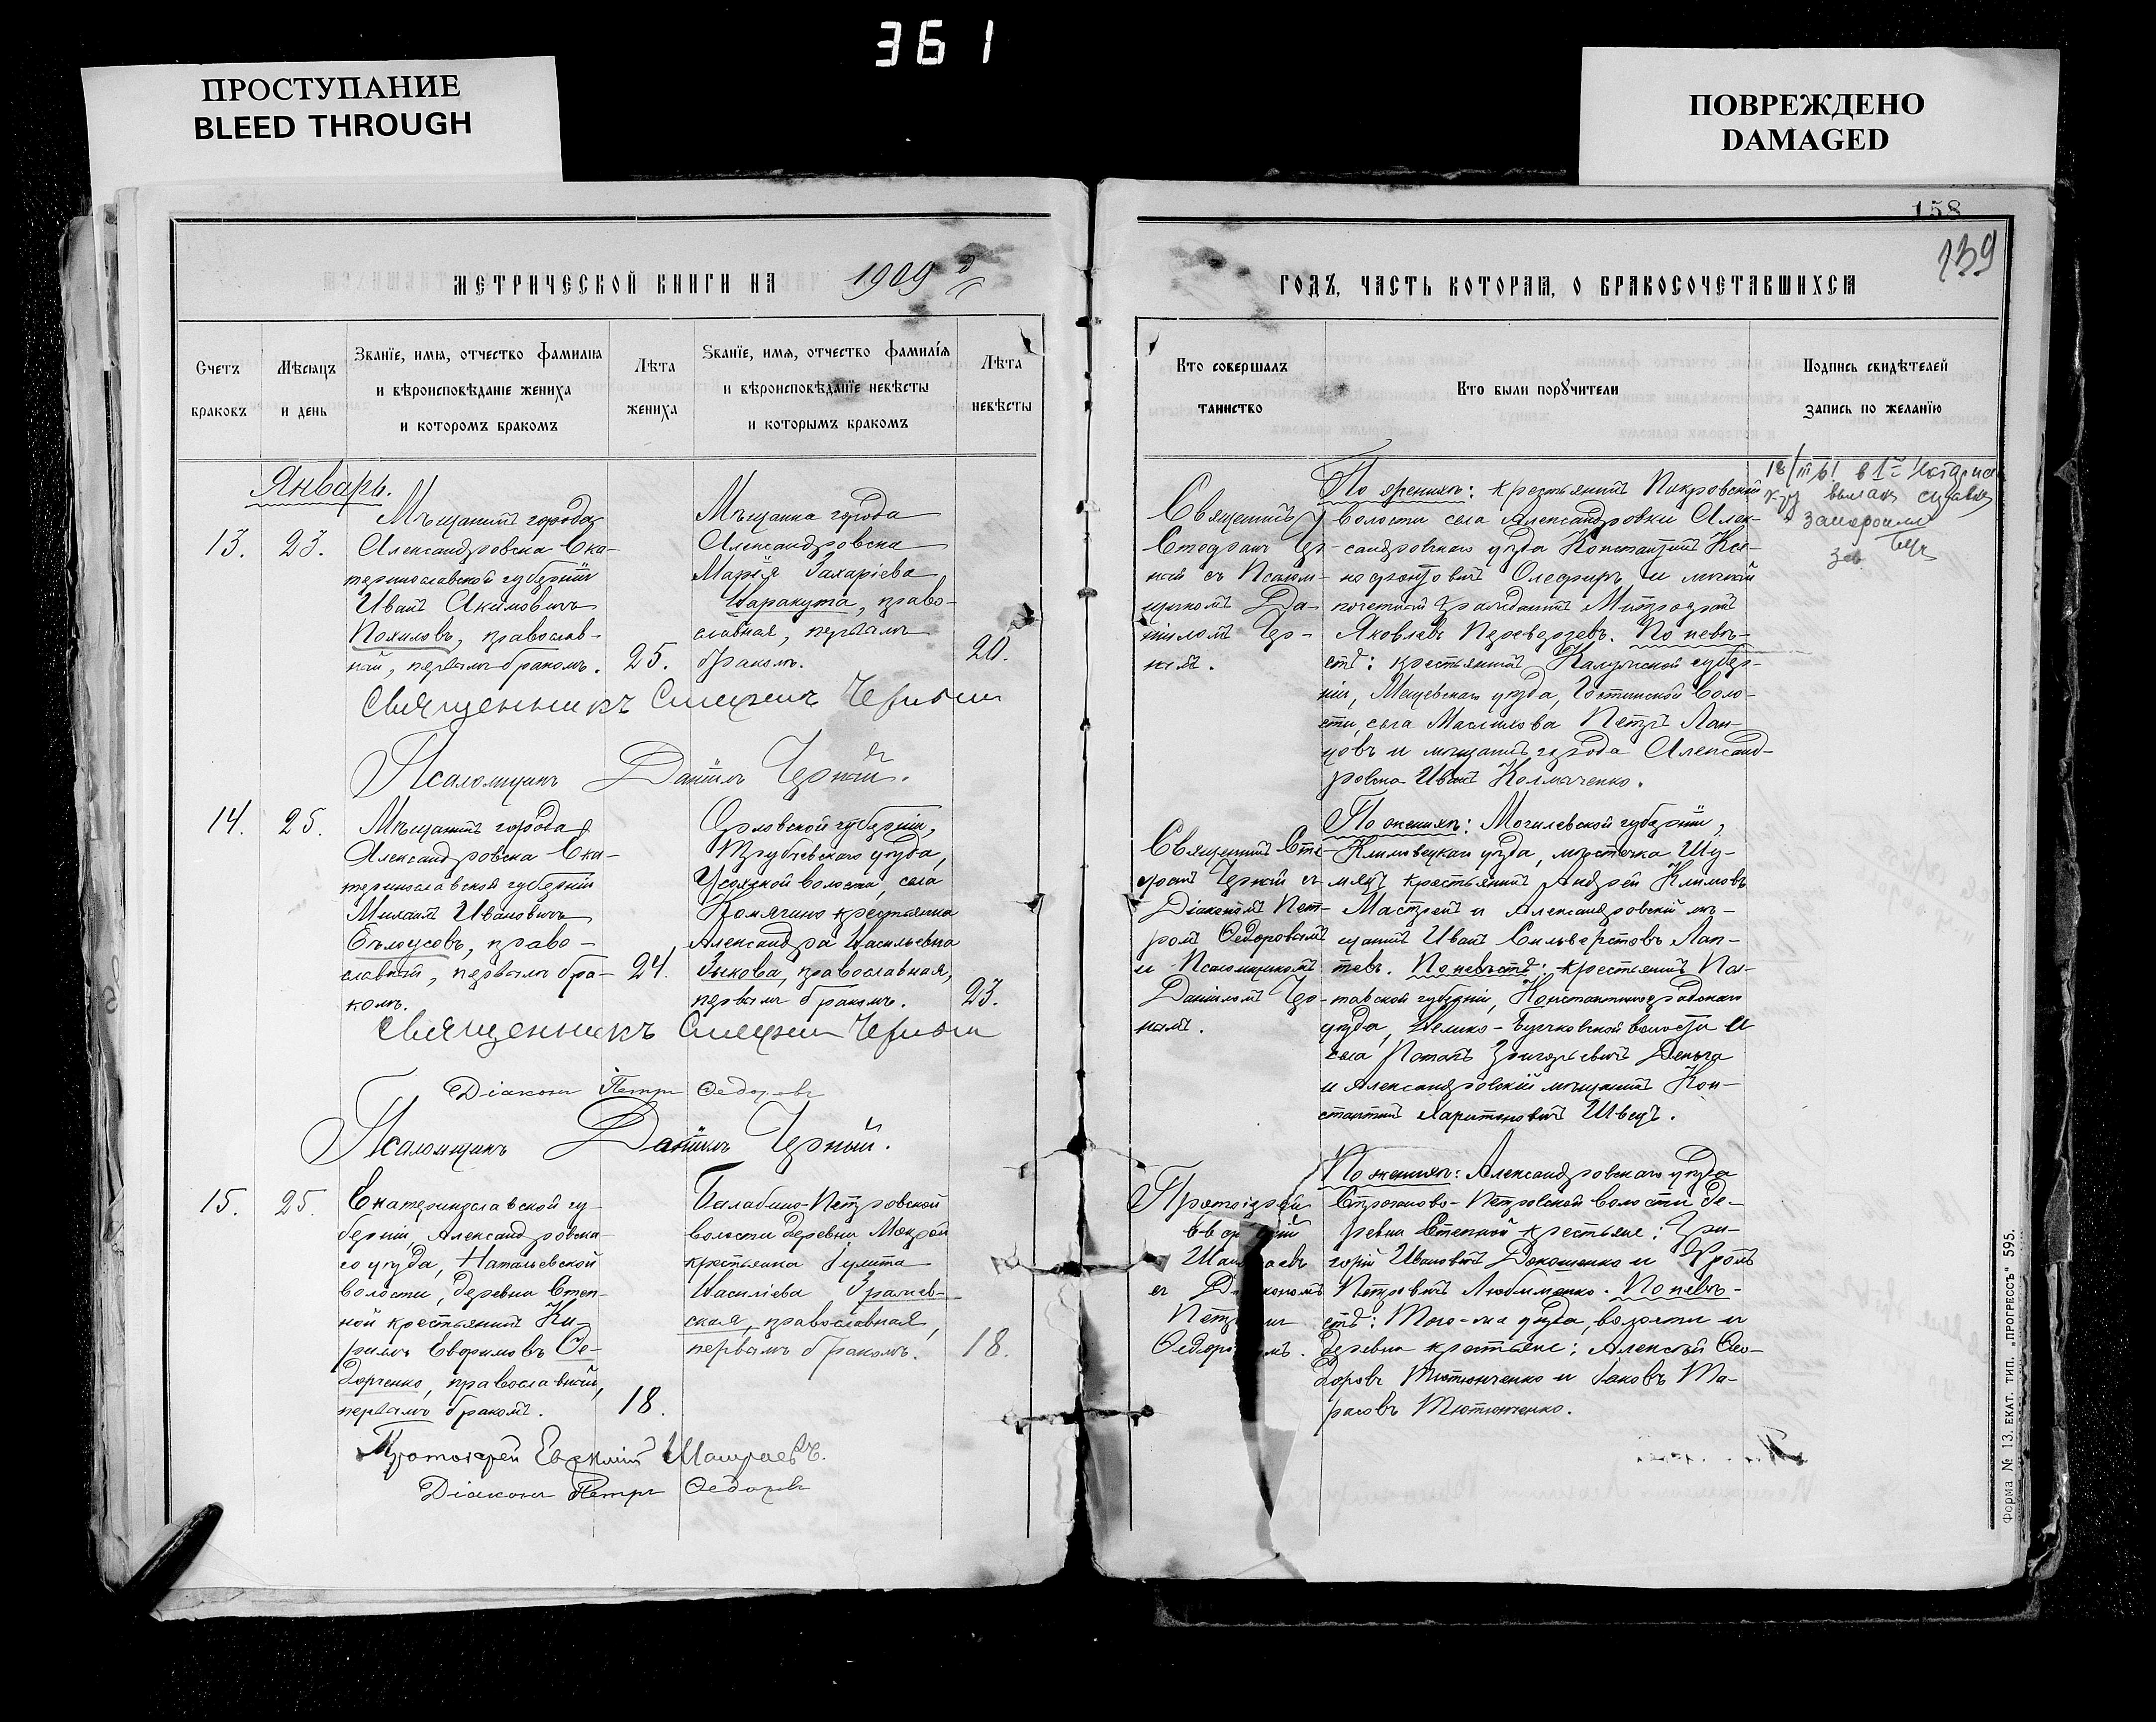 361
ПРОСТУПАНИЕ
BLEED THROUGH
ПОВРЕЖДЕНО
DAMAGED
158
139
МЕТРИЧЕСКОЙ КНИГИ НА 1909
ГОДЪ, ЧАСТЬ КОТОРАЯ, О БРАКОСОЧЕТАВШИХСЯ
Счетъ
браковъ
Мѣсяцъ
и день
Званїе, имя, отчество фамилия
и вѣроисповѣданіе жениха
и которомъ бракомъ
Лѣта
жениха
Званїе, имя, отчество фамилїя
и вѣроисповѣданїе невѣсты
и которымъ бракомъ
Лѣта
невѣсты
Кто совершалъ
таинство
Кто были порꙋчители
Подпись свидѣтелей
запись по желанїю
Январь.
13. 23.
Мѣщанинъ города
Александровска Ека-
теринославской губерніи
Иванъ Акимовичъ
Похиловъ, православ-
ный, первымъ бракомъ.
25.
Мѣщанка города
Александровска
Марія Захаріева
Шаракута, право-
славная, первымъ
бракомъ.
20.
Священникъ Стефанъ Черный
Псаломщикъ Даніилъ Черный.
Священникъ
Стефанъ Чер-
ный съ Псалом-
щикомъ Да-
ніиломъ Чер-
нымъ.
По женихѣ: крестьянинъ Покровской
волости села Александровки Алек-
сандровскаго уѣзда Константинъ
Олефиръ и личный
почетный гражданинъ Митрофанъ
Яковлевъ Переверзевъ. По невѣ-
стѣ: крестьянинъ Калужской губер-
ніи, Мещевскаго уѣзда, волo-
сти, села Маслихова Петръ Лап-
цовъ и мѣщанинъ города Александ-
ровска Иванъ Колмаченко.
14. 25.
Мѣщанинъ города
Александровска Ека-
теринославской губерніи
Михаилъ Ивановичъ
Бѣлоусовъ, право-
славный, первымъ бра-
комъ.
24.
Орловской губерніи,
Трубчевскаго уѣзда,
Усохской волости, села
Комягино крестьянка
Александра Васильевна
Зыкова, православная,
первымъ бракомъ.
23.
Священникъ Стефанъ Черный
Діаконъ Петръ Ѳедоровъ
Псаломщикъ Даніилъ Черный.
Священникъ Сте-
фанъ Черный съ
Діакономъ Пет-
ромъ Ѳедоровымъ
и Псаломщикомъ
Даніиломъ Чер-
нымъ.
По женихѣ: Могилевской губерніи,
Климовецкаго уѣзда, мѣстечка Шу-
мячъ крестьянинъ Андрей Климовъ
и Александровскій мѣ-
щанинъ Иванъ Сильверстовъ Лап-
тевъ. По невѣстѣ: крестьянинъ Пол-
тавской губерніи, Константиноградскаго
уѣзда, Велико-Бучковской волости и
села Потапъ Григорьевичъ Деньга
и Александровскій мѣщанинъ Кон-
стантинъ Харитоновичъ Швецъ.
15. 25.
Екатеринославской гу-
берніи, Александровска-
го уѣзда, Натальевской
волости, деревни Степ-
ной крестьянинъ Ки-
риллъ Евфимовъ Ѳе-
дорченко, православный,
первымъ бракомъ.
18.
Балабино-Петровской
волости деревни Мокрой
крестьянка Іулита
Василіева Грачев-
ская, православная,
первымъ бракомъ.
18.
Протоіерей Евфимій Машраевъ.
Діаконъ Петръ Ѳедоровъ
Протоіерей
съ Діакономъ
Ѳедоровымъ.
По женихѣ: Александровскаго уѣзда
Строганово-Петровской волости де-
ревни Степной крестьяне: Гри-
горій Ивановичъ Докошенко и Фролъ
Петровичъ Любименко. По невѣ-
стѣ: Того-же уѣзда, волости и
деревни крестьяне: Алексѣй Ѳео-
доровъ Тютюнченко и Іаковъ Та-
расовъ Тютюнченко.
Форма № 13. ЕКАТ. ТИП. „ПРОГРЕССЪ" 595.